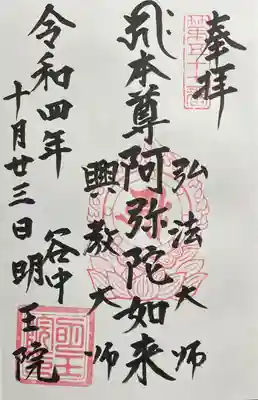 奉拝
弘法大師
本尊阿弥陀如来
興教大師
谷中明王院
令和四年
十月廿三日